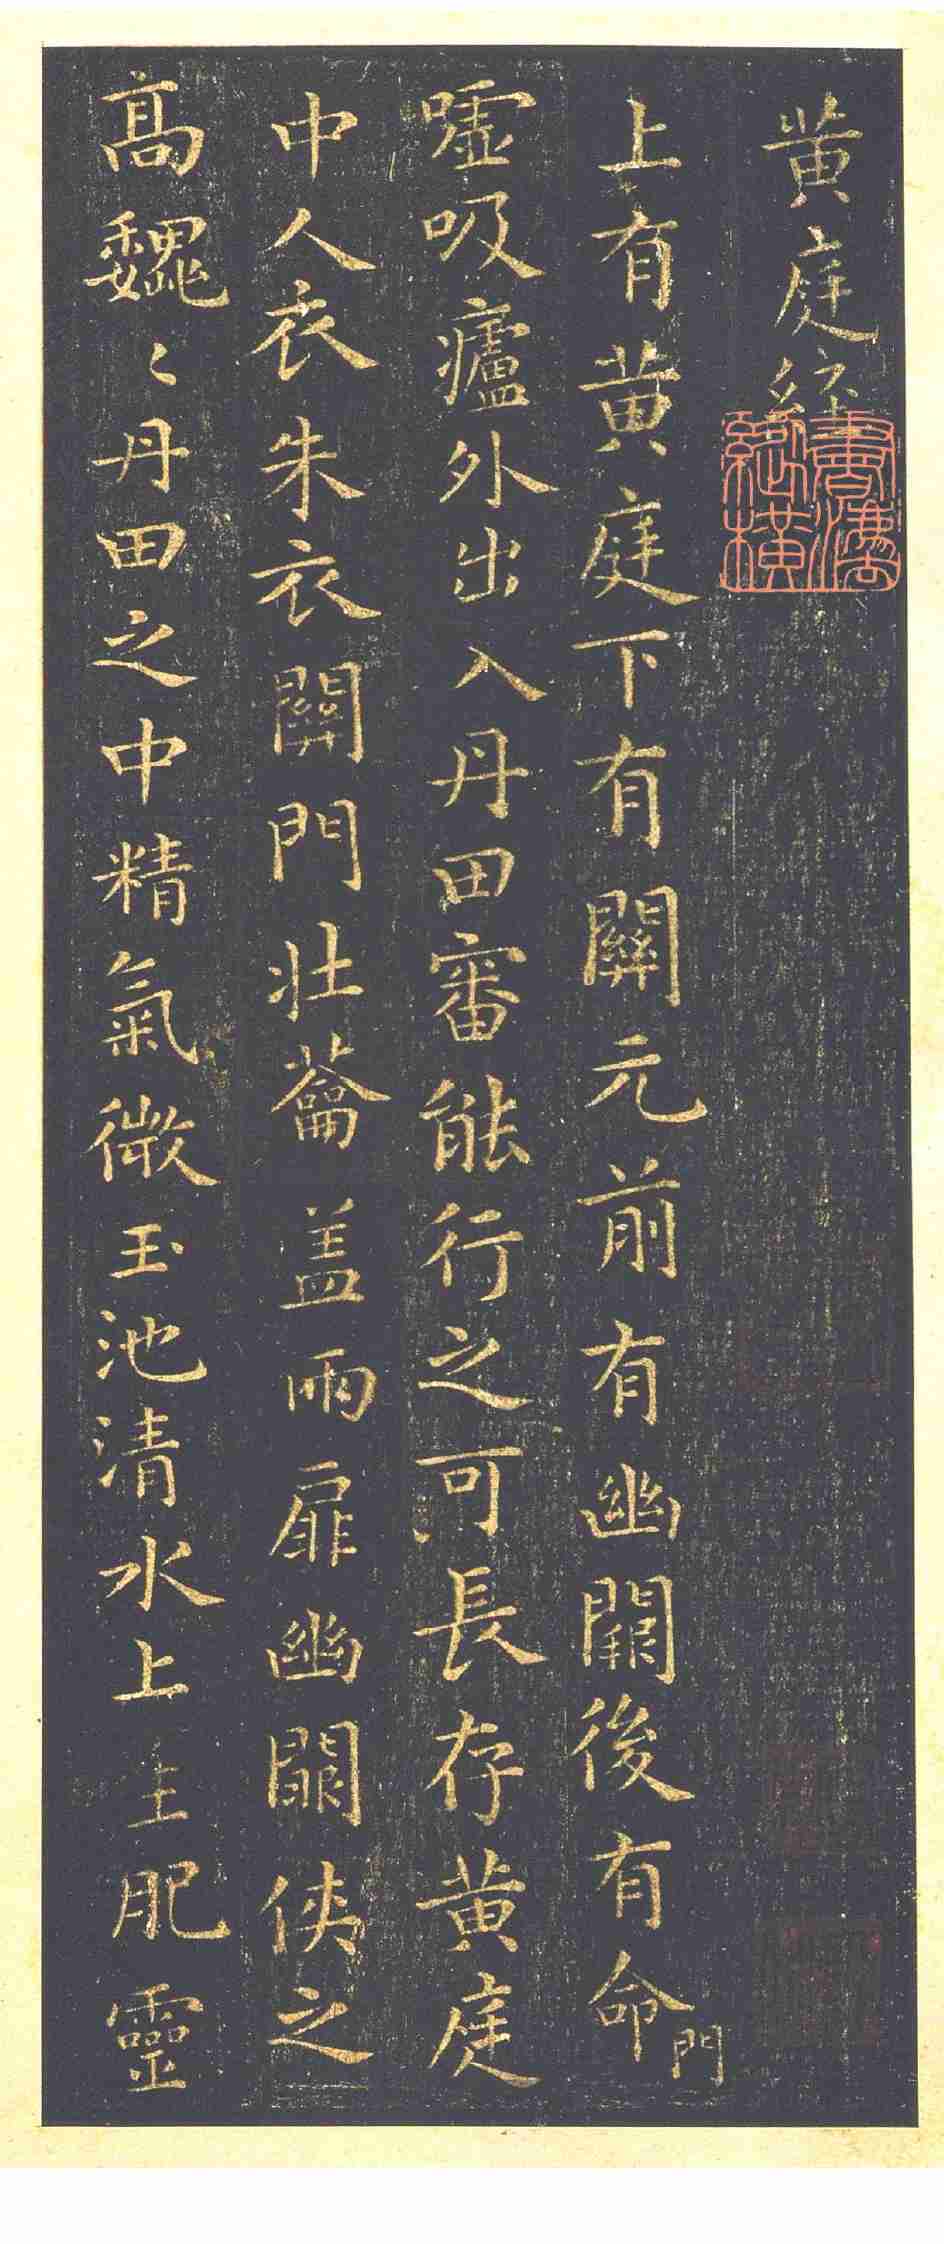 黄庭經
上有黄庭下有關元前有幽闕後有命門
嘘吸廬外出入丹田審能行之可長存黄庭
中人衣朱衣關門壯蘥盖兩扉幽闕俠之
髙巍〻丹田之中精氣微玉池清水上生肥靈
書法縱横